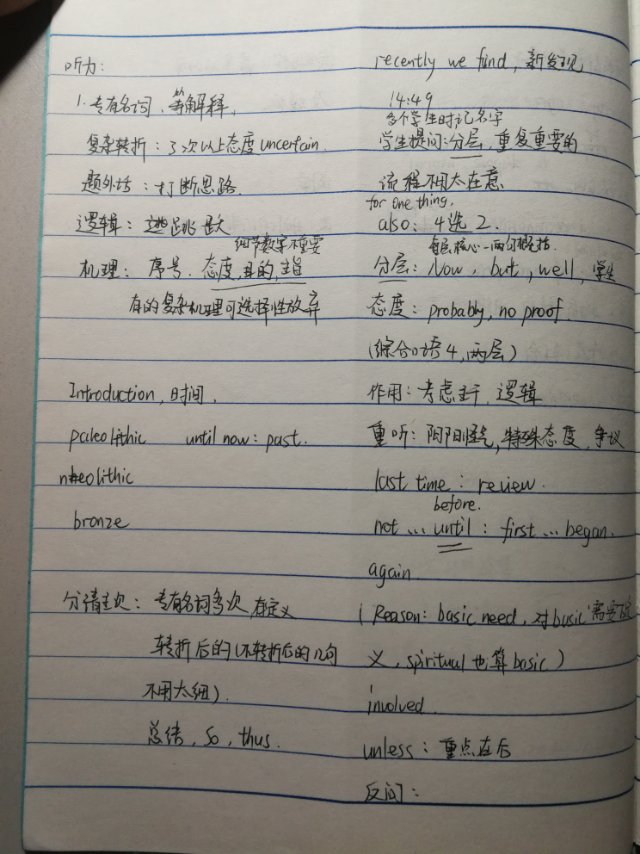 听力:
1. 专有名词、等解释.
复杂转折: 3次以上态度uncertain.
题外话: 打断思路.
逻辑: 跳跃大
细节数字不重要
机理: 序号、态度,目的,主旨
有的复杂机理可选择性放弃
Introduction,时间,
paleolithic until now: past.
neolithic
bronze
分清主次: 专有名词多次,有定义
转折后的(不转折后的几句
不用太细).
总结, so, thus.
recently we find, 新发现
14:49
多个学生时记名字
学生提问:分层,重复重要的
流程不用太在意
for one thing,
also: 4选2.
每层核心一两句概括
分层: Now, but, well, 学生
态度: probably, no proof.
(综合口语4,两层)
作用: 考虑主干,逻辑
重听: 阴阳怪气,特殊态度,争议
last time: review.
before.
not ... until: first ... began.
again
(Reason: basic need, 对basic需要定
义, spiritual也算basic)
involved.
unless: 重点在后
反问: